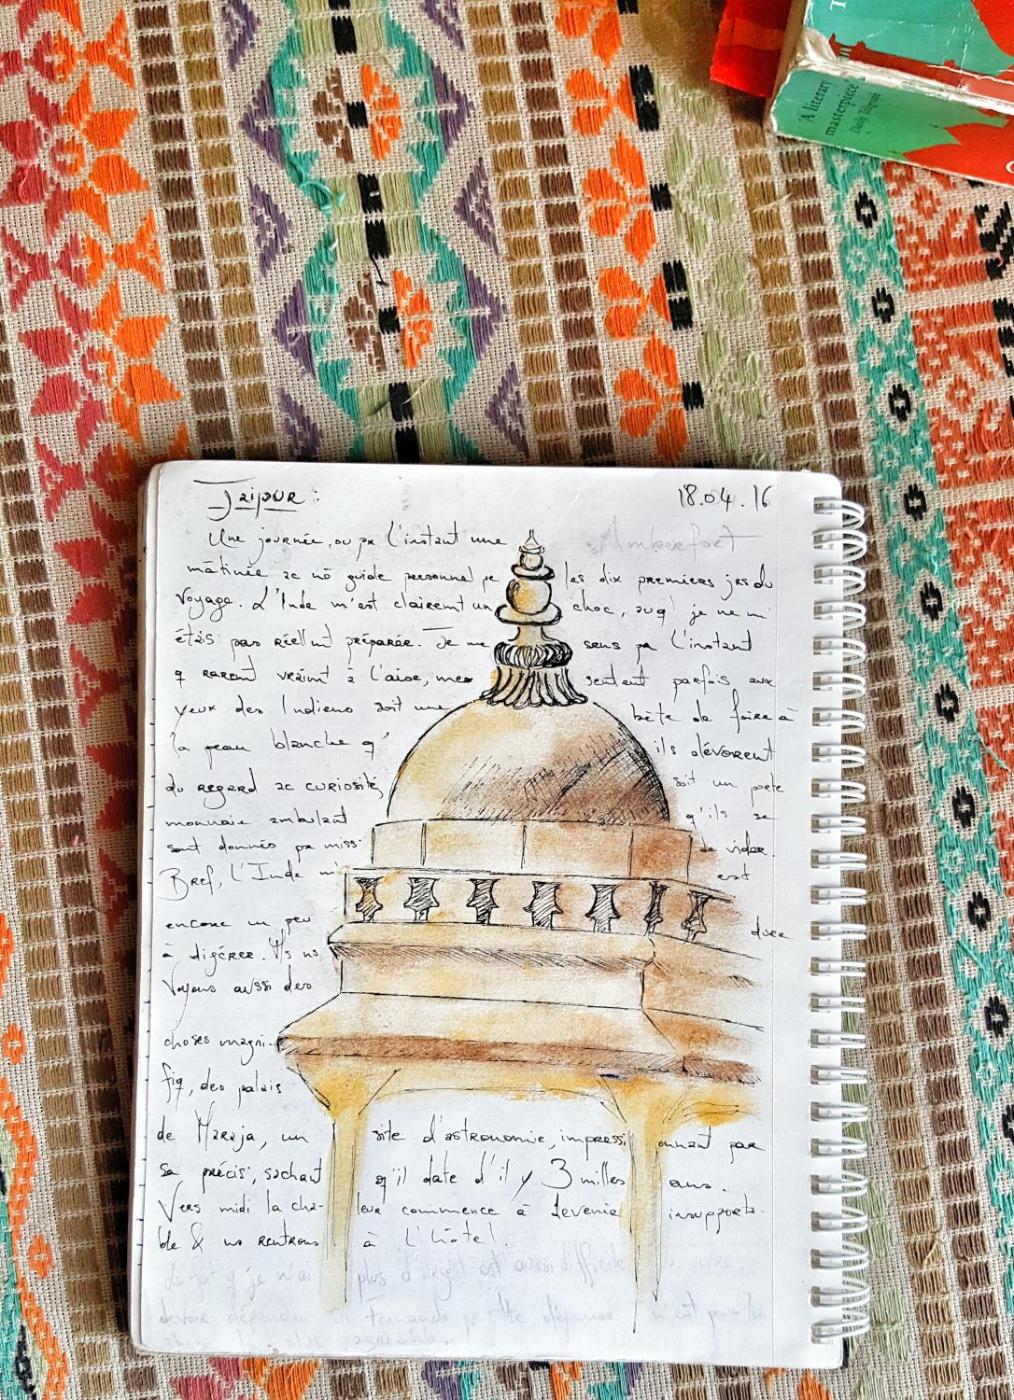 T
'A literary
masterpiece'
Daily Telegraph
Jaipur :
18.04.16
Amberfort
Une journée, ou pr l'instant une
mâtinée ac nô guide personnal pr les dix premiers jrs du
voyage. L'Inde m'est clairemt un choc, auql je ne m'
étais pas réellmt préparée. Je me sens pr l'instant
q raremt vraimt à l'aise, me sentant parfois aux
yeux des Indiens soit une bête de foire à
la peau blanche q' ils dévorent
du regard ac curiosité, soit un porte
monnaie ambulant q'ils se
sont donnés pr miss° de vider.
Bref, l'Inde m' est
encore un peu dure
à digérer. Ns
voyons aussi des
choses magni-
fiq, des palais
de Maraja, un site d'astronomie, impressionnant par
sa précis°, sachant q'il date d'il y 3 milles ans.
Vers midi la cha- leur commence à devenir insupporta-
ble & ns rentrons à l'hôtel.
plus d'argent est aussi difficile